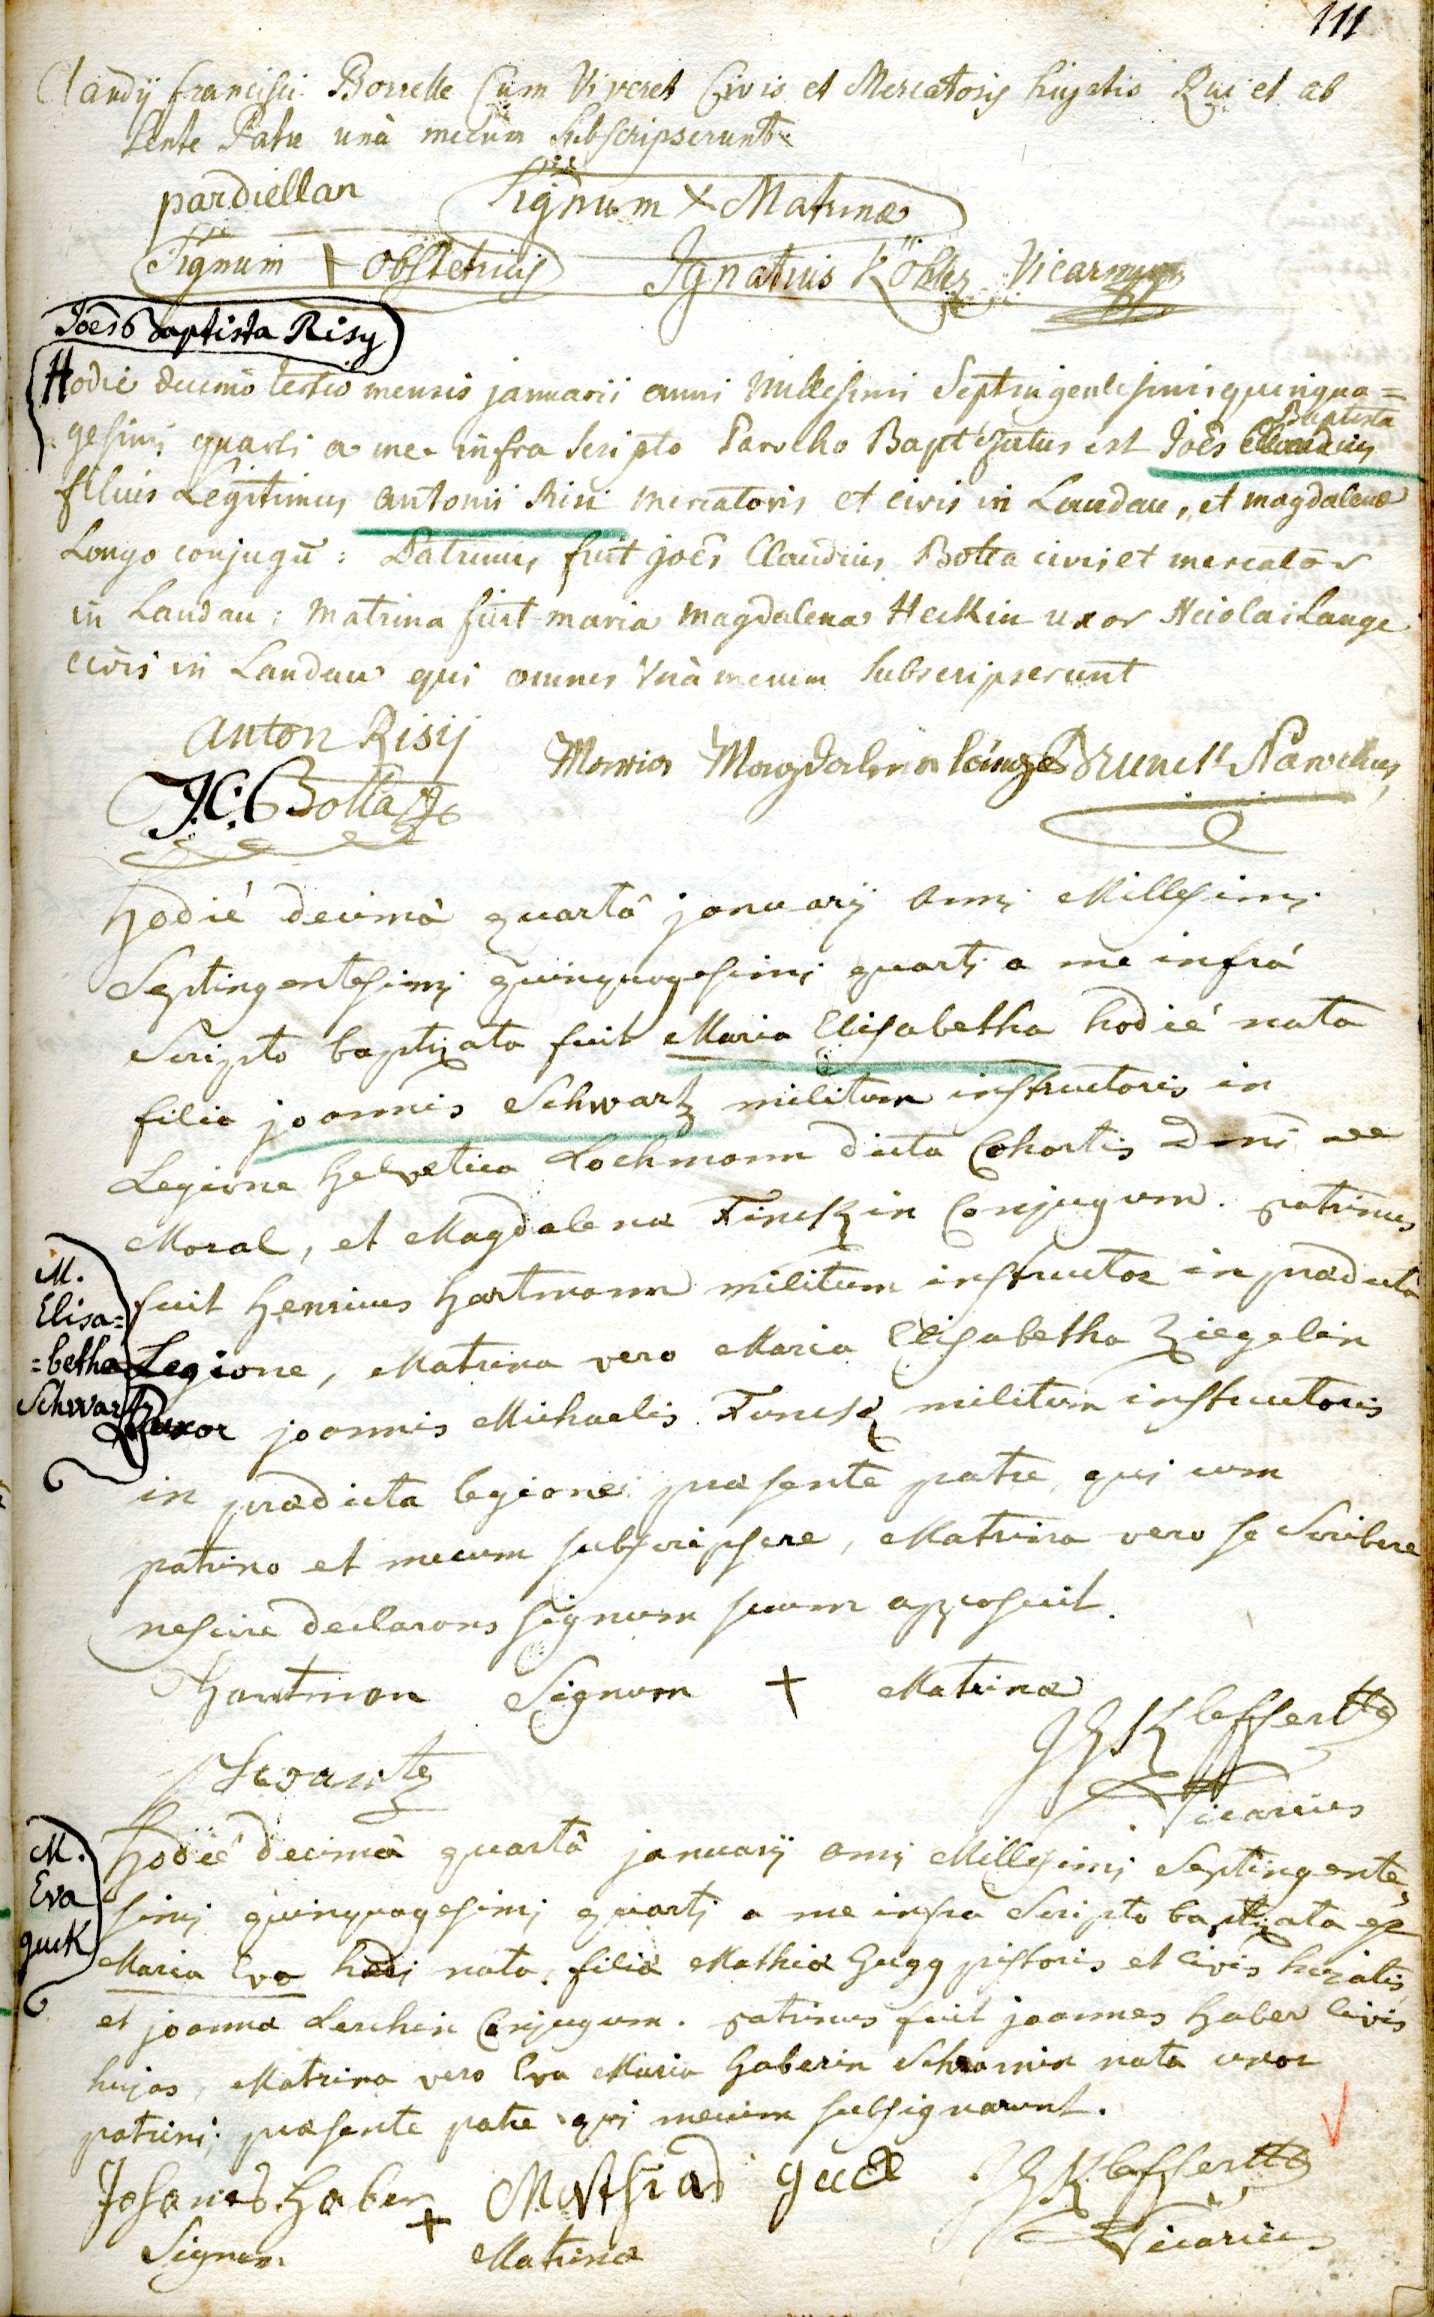 111
Claudij francisci Borrelle Cum Viveret Civis et Mercatoris hujatis Qui et ab
sente Patre unà mecum Subscripserunt
pardiellan Signum X Matrinæ
Signum + obstetricis Ignatius Köhler Vicarius
Joēs Baptista Risy
Hodie decimo tertio mensis januarii anni millesimi Septingentesimi quinqua=
gesimi quarti a me infra scripto Parocho Baptizatus est Joēs Baptista
filius Legitimus antonii Risi mercatoris et civis in Landau, et magdalenæ
Longo conjugū : Patrinus fuit joēs Claudius Botta civis et mercator
in Landau ; matrina fuit maria magdalena Heckin uxor Nicolai Lange
civis in Landau qui omnes Unà mecum subscripserunt
anton Risij
Maria Magdalena Langes Brunck Parochus
J.C. Botta
hodié decimâ quartâ januarij anni Millesimi
Septingentesimi quinquagesimi quarti a me infrá
Scripto baptizata fuit Maria Elisabetha hodié nata
filia joannis Schwartz militum instructoris in
Legione helvetica Lochmann dicta Cohortis Dni de
Moral, et Magdalenæ Finckin Conjugum. patrinus
fuit henricus hartmann militum instructor in prædicta
M.
Elisa=
=betha
Schwartz
Legione, Matrina vero Maria Elisabetha Ziegelin
uxor joannis Michaelis Funck militum instructoris
in prædicta legione præsente patre, qui cum
patrino et mecum subscripsere, Matrina vero se Scribere
nescire declarans signum suum apposuit.
hartman Signum + Matrinæ
Schwartz
Vicarius
M.
Eva
guck
hodié decimâ quartâ januarij anni Millesimi Septingente,
simi quinquagesimi quarti a me infra Scripto baptizata est
Maria Eva hodi nata, filia Mathiæ Gugg pistoris et civis hujatis
et joannæ Lerchin Conjugum. patrinus fuit joannes haber civis
hujas, Matrina vero Eva Maria haberin Schramin nata uxor
patrini; præsente patre qui mecum subsignarunt.
Johanes haber Mathias guck
Signum + Matrinæ Vicarius